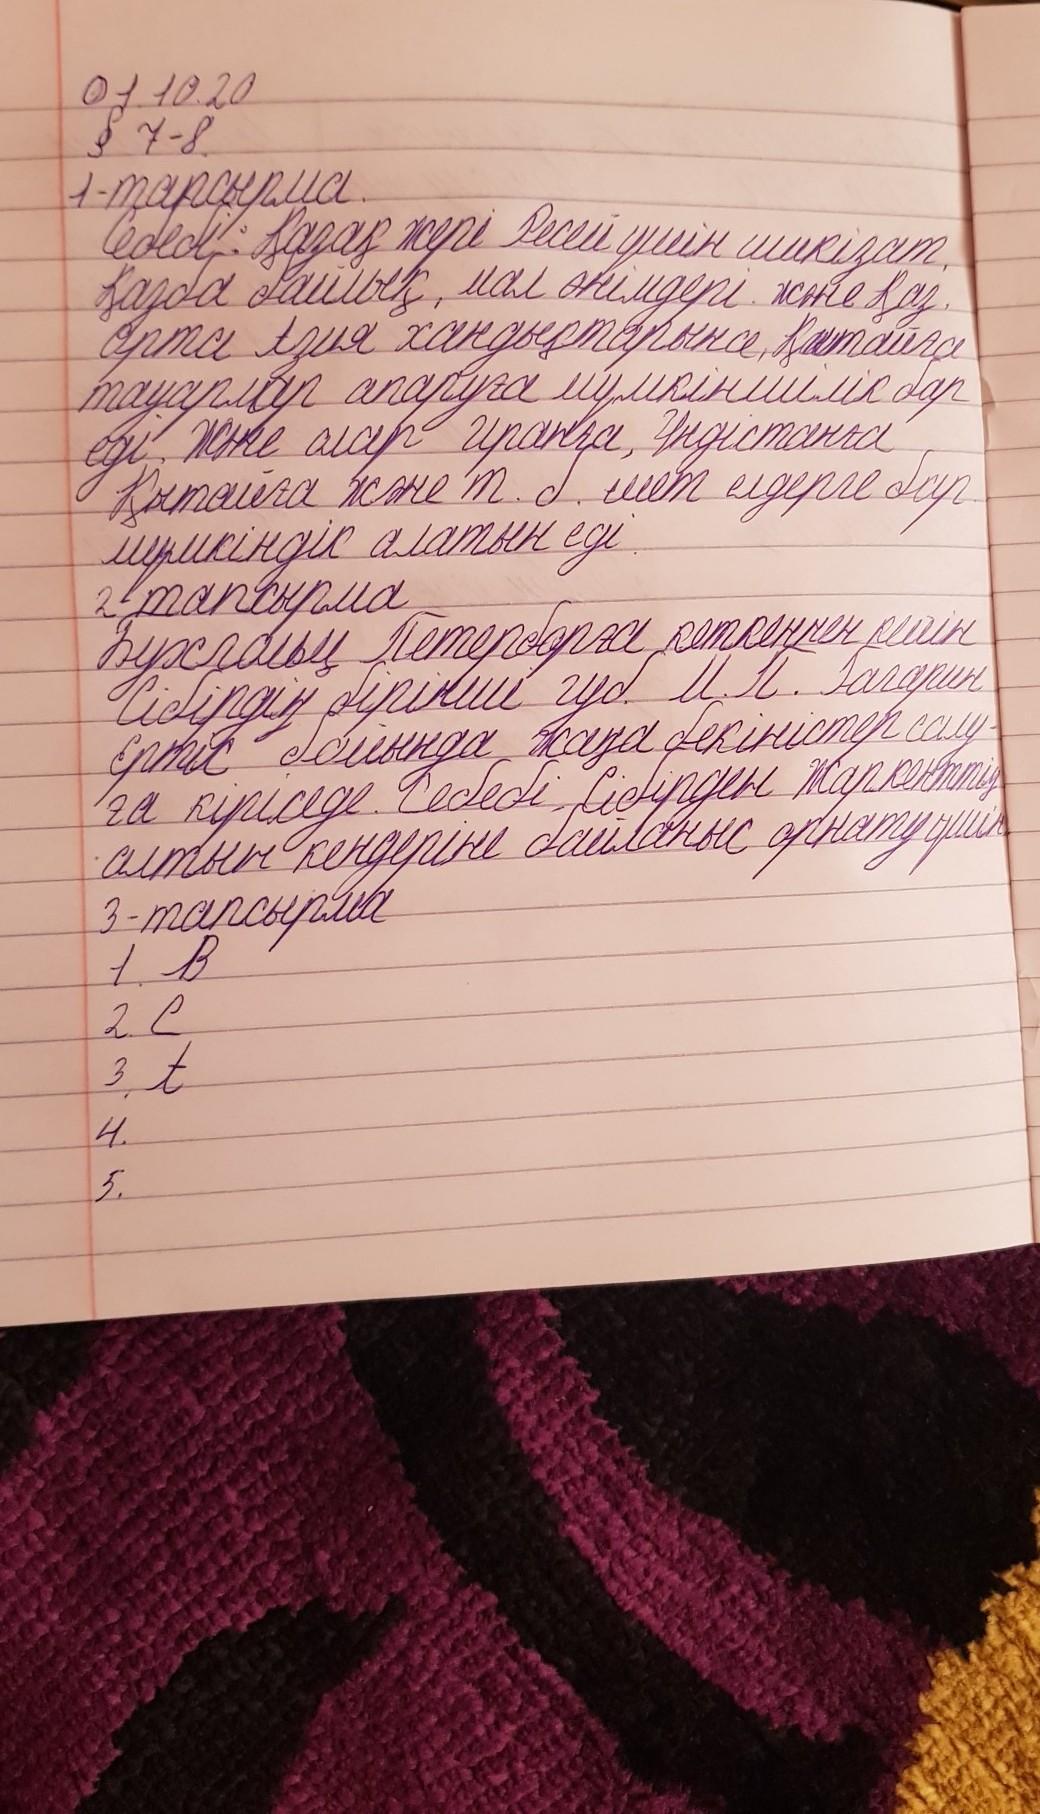 01.10.20
§ 7-8.
1-тапсырма.
Себебі: Қазақ жері Ресей үшін шикізат,
Қазба байлық, мал өнімдері. және Қаз.
Орта Азия хандықтарына, Қытайға
тауарлар апаруға мүмкіншілік бар
еді. Және олар Иранға, Үндістанға
Қытайға және т. б. шет елдерге бар
мүмкіндік алатын еді.
2-тапсырма
Бухгольц Петерборға кеткеннен кейін
Сібірдің бірінші губ. М. П. Гагарин
Ертіс бойында жаңа бекіністер салу-
ға кіріседе. Себебі, Сібірден Жаркенттің
алтын кендеріне байланыс орнату үшін
3-тапсырма
1. В
2. С
3. А
4.
5.